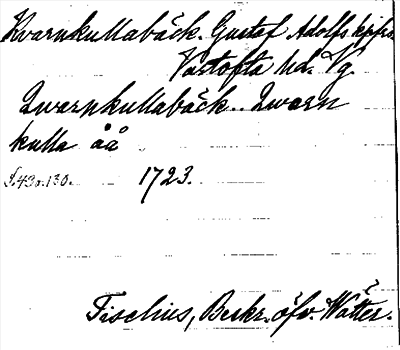 Kvarnkullabäck. Gustaf Adolfs kpfrs.
Vartofta hd. Vg.
Qwarnkullabäck.. Qwarn
kulla åå
S.43 o. 130. 1723.
Tiselius, Beskr. öfv. Wätter.